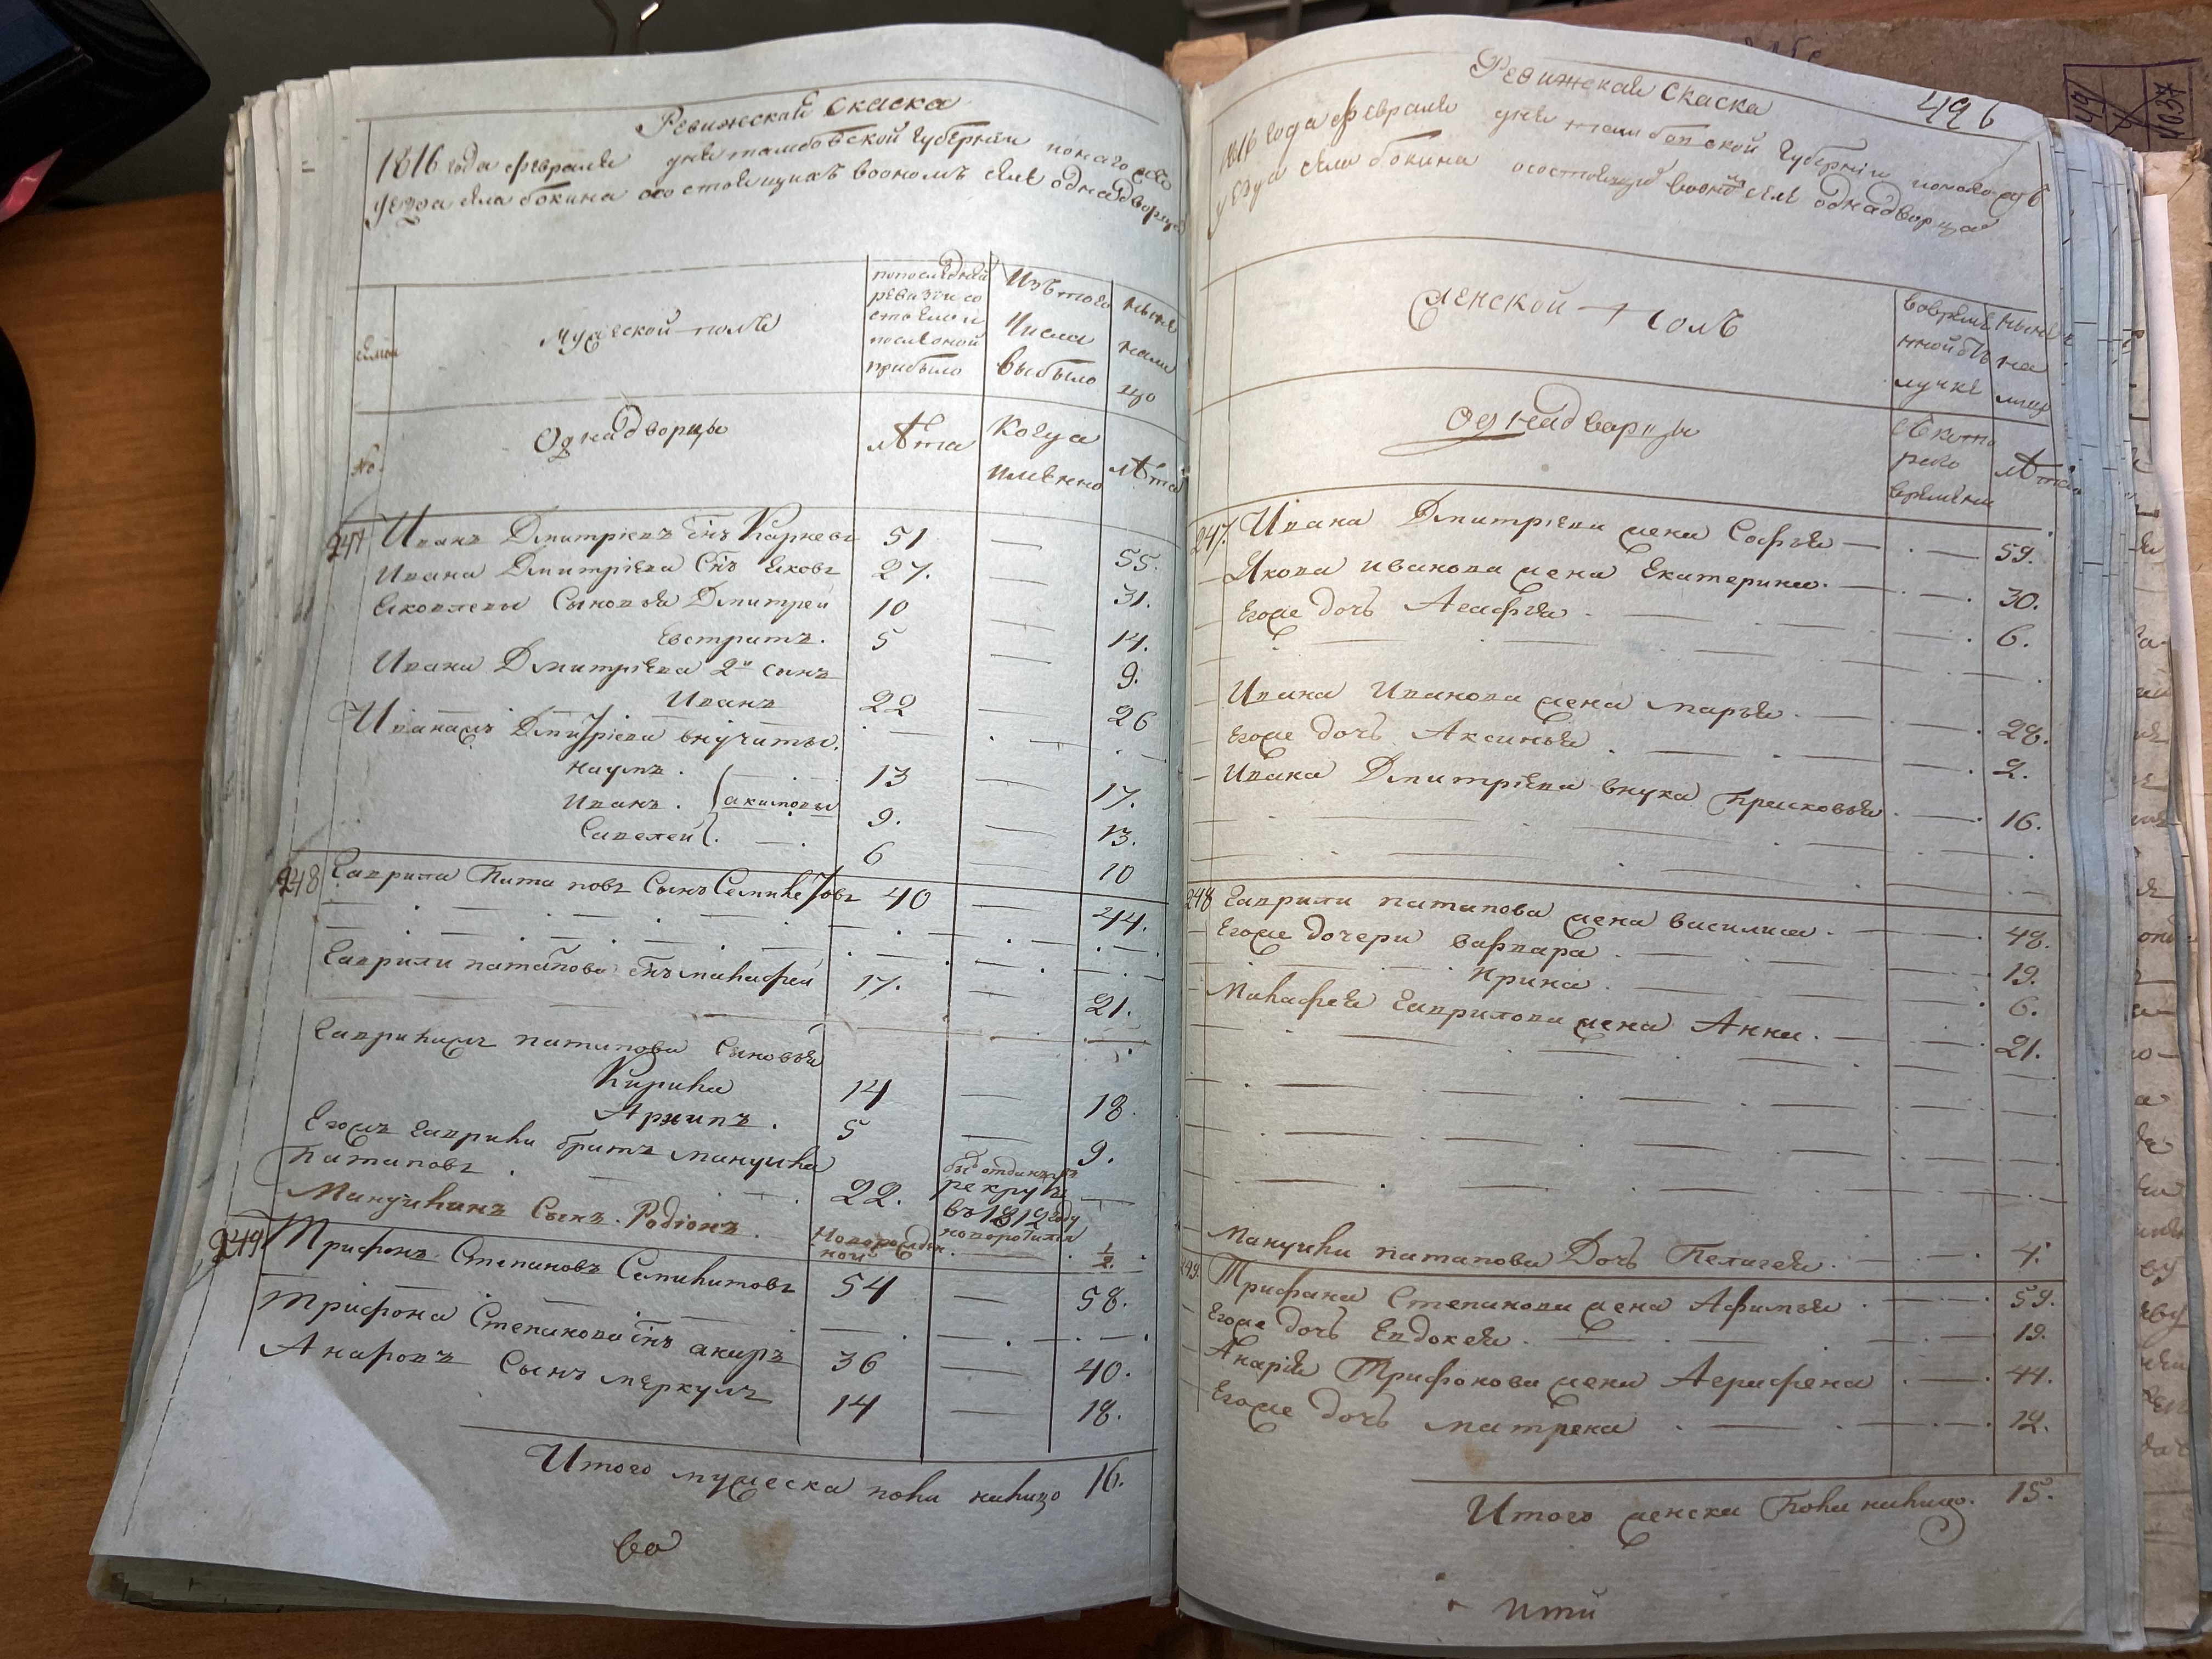 Ревижская скаска
1816 года февраля дня тамбовской губернии
уезда села бокина состоящихъ воономъ селе однадворца
мужеской полъ
попоследней
ревизии со
стояло и
после оной
прибыло
Изътого
числа
выбыло
ныне
нали
цо
семьи
No.
Однадворцы
лѣта
когда
имѣнно
лѣта
247 Иванъ Дмитріевъ снъ Карневъ 51 — 55.
Ивана Дмитріева снъ Яковъ 27. — 31.
Яковлевы сыновья Дмитрей 10 — 14.
Евстратъ. 5 — 9.
Ивана Дмитріева 2й сынъ
Иванъ 22 — 26
Дмитріева внучаты.
наумъ. 13 — 17.
Иванъ. акимовы 9. — 13.
Савелей 6 — 10
248 Гаврила Патаповъ сынъ 40 — 44.
Гаврилы патапова снъ макафей 17. — 21.
патапова сыновья
Кирила 14 — 18.
Архипъ. 5 — 9.
Егожъ гаврилы братъ мануила
Патаповъ. 22. рекруты —
въ 1812 году
Мануиланъ сынъ. Родіонъ. Новорожден
ной — 1/2.
249 Трифонъ Степановъ Селихитовъ 54 — 58.
Трифона Степанова снъ анаръ 36 — 40.
Анаровъ сынъ меркулъ 14 — 18.
Итого мужеска пола налицо 16.
во
Ревижская скаска
496
1816 года февраля дня тамбовской губернии
уезда села бокина воономъ селе однадворца
женской полъ
вовреме
нной отъ
лучке
ныне
на
лицо
Однадворцы
съ кото
рого
времѣни
лѣта
247. Ивана Дмитріева жена Софья — . — 59.
Якова иванова жена Екатерина. — . — 30.
Егоже дочь Агафья. 6.
Ивана Иванова жена марья. 28.
Егоже дочь Аксинья. 2.
Ивана Дмитріева внука Прасковья. 16.
248 Гаврилы патапова жена василиса. 48.
Егоже дочери варвара. 19.
Ирина. 6.
Макафея Гаврилова жена Анна. 21.
Мануилы патапова Дочь Пелагея. 4.
249. Трифана Степанова жена Афимья. 59.
Егоже дочь Евдокея. 19.
Анарія Трифонова жена Агрифена. 44.
Егоже дочь матрена 12.
Итого женска пола налицо. 15.
1037